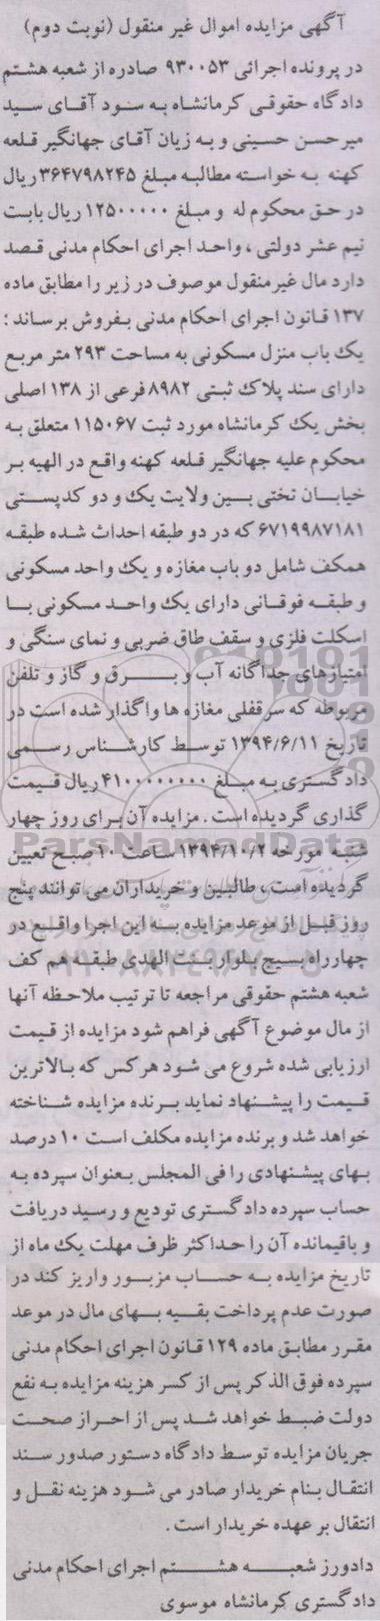 آگهی مزایده اموال غیر منقول (نوبت دوم)
در پرونده اجرائی ۹۳۰۰۵۳ صادره از شعبه هشتم
دادگاه حقوقی کرمانشاه به سود آقای سید
میرحسن حسینی و به زیان آقای جهانگیر قلعه
کهنه به خواسته مطالبه مبلغ ۳۶۴۷۹۸۲۴۵ ریال
در حق محکوم له و مبلغ ۱۲۵۰۰۰۰۰ ریال بابت
نیم عشر دولتی ، واحد اجرای احکام مدنی قصد
دارد مال غیرمنقول موصوف در زیر را مطابق ماده
۱۳۷ قانون اجرای احکام مدنی بفروش برساند :
یک باب منزل مسکونی به مساحت ۲۹۳ متر مربع
دارای سند پلاک ثبتی ۸۹۸۲ فرعی از ۱۳۸ اصلی
بخش یک کرمانشاه مورد ثبت ۱۱۵۰۶۷ متعلق به
محکوم علیه جهانگیر قلعه کهنه واقع در الهیه بر
خیابان تختی بین ولایت یک و دو کدپستی
۶۷۱۹۹۸۷۱۸۱ که در دو طبقه احداث شده طبقه
همکف شامل دو باب مغازه و یک واحد مسکونی
و طبقه فوقانی دارای یک واحد مسکونی با
اسکلت فلزی و سقف طاق ضربی و نمای سنگی و
امتیازهای جداگانه آب و برق و گاز و تلفن
مربوطه که سرقفلی مغازه ها واگذار شده است در
تاریخ ۱۳۹۴/۶/۱۱ توسط کارشناس رسمی
دادگستری به مبلغ ۴۱۰۰۰۰۰۰۰۰ ریال قیمت
گذاری گردیده است . مزایده آن برای روز چهار
شنبه مورخه ۱۳۹۴/۱۰/۲ ساعت ۱۰ صبح تعیین
گردیده است ، طالبین و خریداران می توانند پنج
روز قبل از موعد مزایده به این اجرا واقع در
چهارراه بسیج بلوار بنت الهدی طبقه هم کف
شعبه هشتم حقوقی مراجعه تا ترتیب ملاحظه آنها
از مال موضوع آگهی فراهم شود مزایده از قیمت
ارزیابی شده شروع می شود هرکس که بالاترین
قیمت را پیشنهاد نماید برنده مزایده شناخته
خواهد شد و برنده مزایده مکلف است ۱۰ درصد
بهای پیشنهادی را فی المجلس بعنوان سپرده به
حساب سپرده دادگستری تودیع و رسید دریافت
و باقیمانده آن را حداکثر ظرف مهلت یک ماه از
تاریخ مزایده به حساب مزبور واریز کند در
صورت عدم پرداخت بقیه بهای مال در موعد
مقرر مطابق ماده ۱۲۹ قانون اجرای احکام مدنی
سپرده فوق الذکر پس از کسر هزینه مزایده به نفع
دولت ضبط خواهد شد پس از احراز صحت
جریان مزایده توسط دادگاه دستور صدور سند
انتقال بنام خریدار صادر می شود هزینه نقل و
انتقال بر عهده خریدار است .
دادورز شعبه هشتم اجرای احکام مدنی
دادگستری کرمانشاه موسوی
ParsNamadData